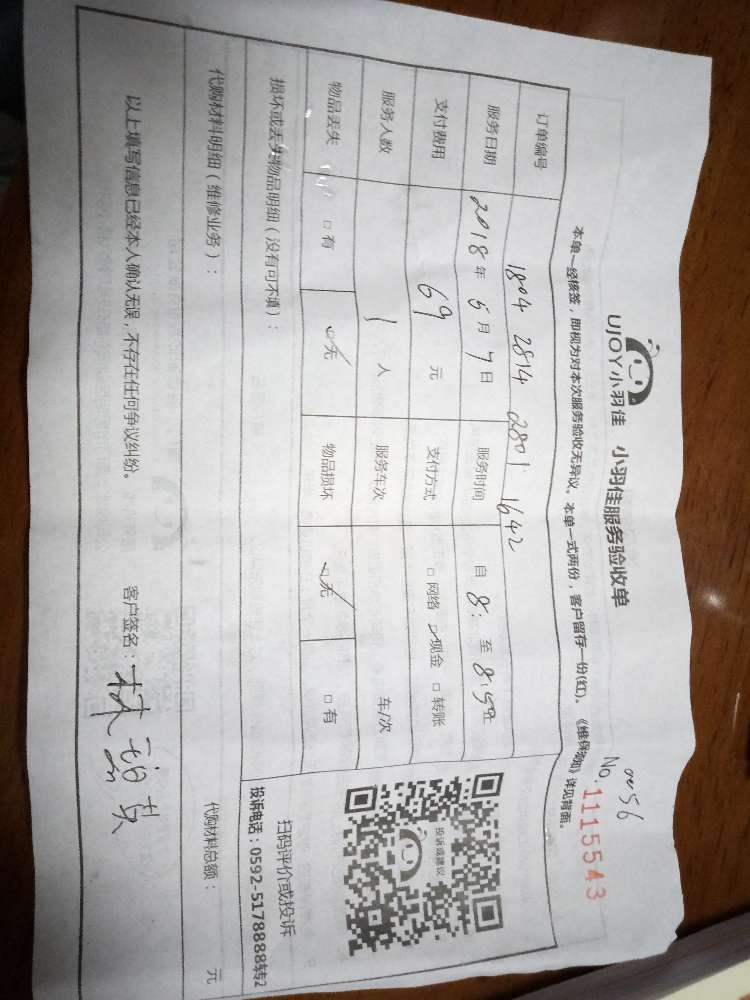 UJOY小羽佳 小羽佳服务验收单
0056
No.1115543
本单一经核签，即视为对本次服务验收无异议。本单一式两份，客户留存一份(红)。《维保须知》详见背面。
订单编号 1804 2814 2801 1642
服务日期 2018年5月7日 服务时间 自8: 至8:59
支付费用 69元 支付方式 □网络 ☑现金 □转账
服务人数 1人 服务车次 车/次
物品丢失 □有 ☑无 物品损坏 ☑无 □有
投诉或建议
扫码评价或投诉
投诉电话：0592-5178888转2
损坏或丢失物品明细（没有可不填）：
代购材料明细（维修业务）： 代购材料总额： 元
以上填写信息已经本人确认无误，不存在任何争议纠纷。 客户签名：林